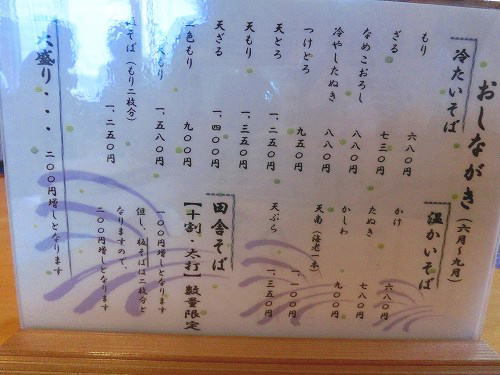 おしながき(六月〜九月)
冷たいそば
もり 六八〇円
ざる 七三〇円
なめこおろし 八八〇円
冷やしたぬき 八八〇円
つけとろ 九五〇円
天とろ 一、二五〇円
天もり 一、三五〇円
天ざる 一、四〇〇円
色もり 九〇〇円
天もり 一、五八〇円
板そば(もり二枚分) 一、二五〇円
大盛り・・・二〇〇円増しとなります
温かいそば
かけ 六八〇円
たぬき 七八〇円
かしわ 九〇〇円
天南(海老一本) 一、一〇〇円
天ぷら 一、三五〇円
田舎そば
【十割・太打】数量限定
一〇〇円増しとなります
但し、板そばは二枚分と
なりますので、
二〇〇円増しとなります